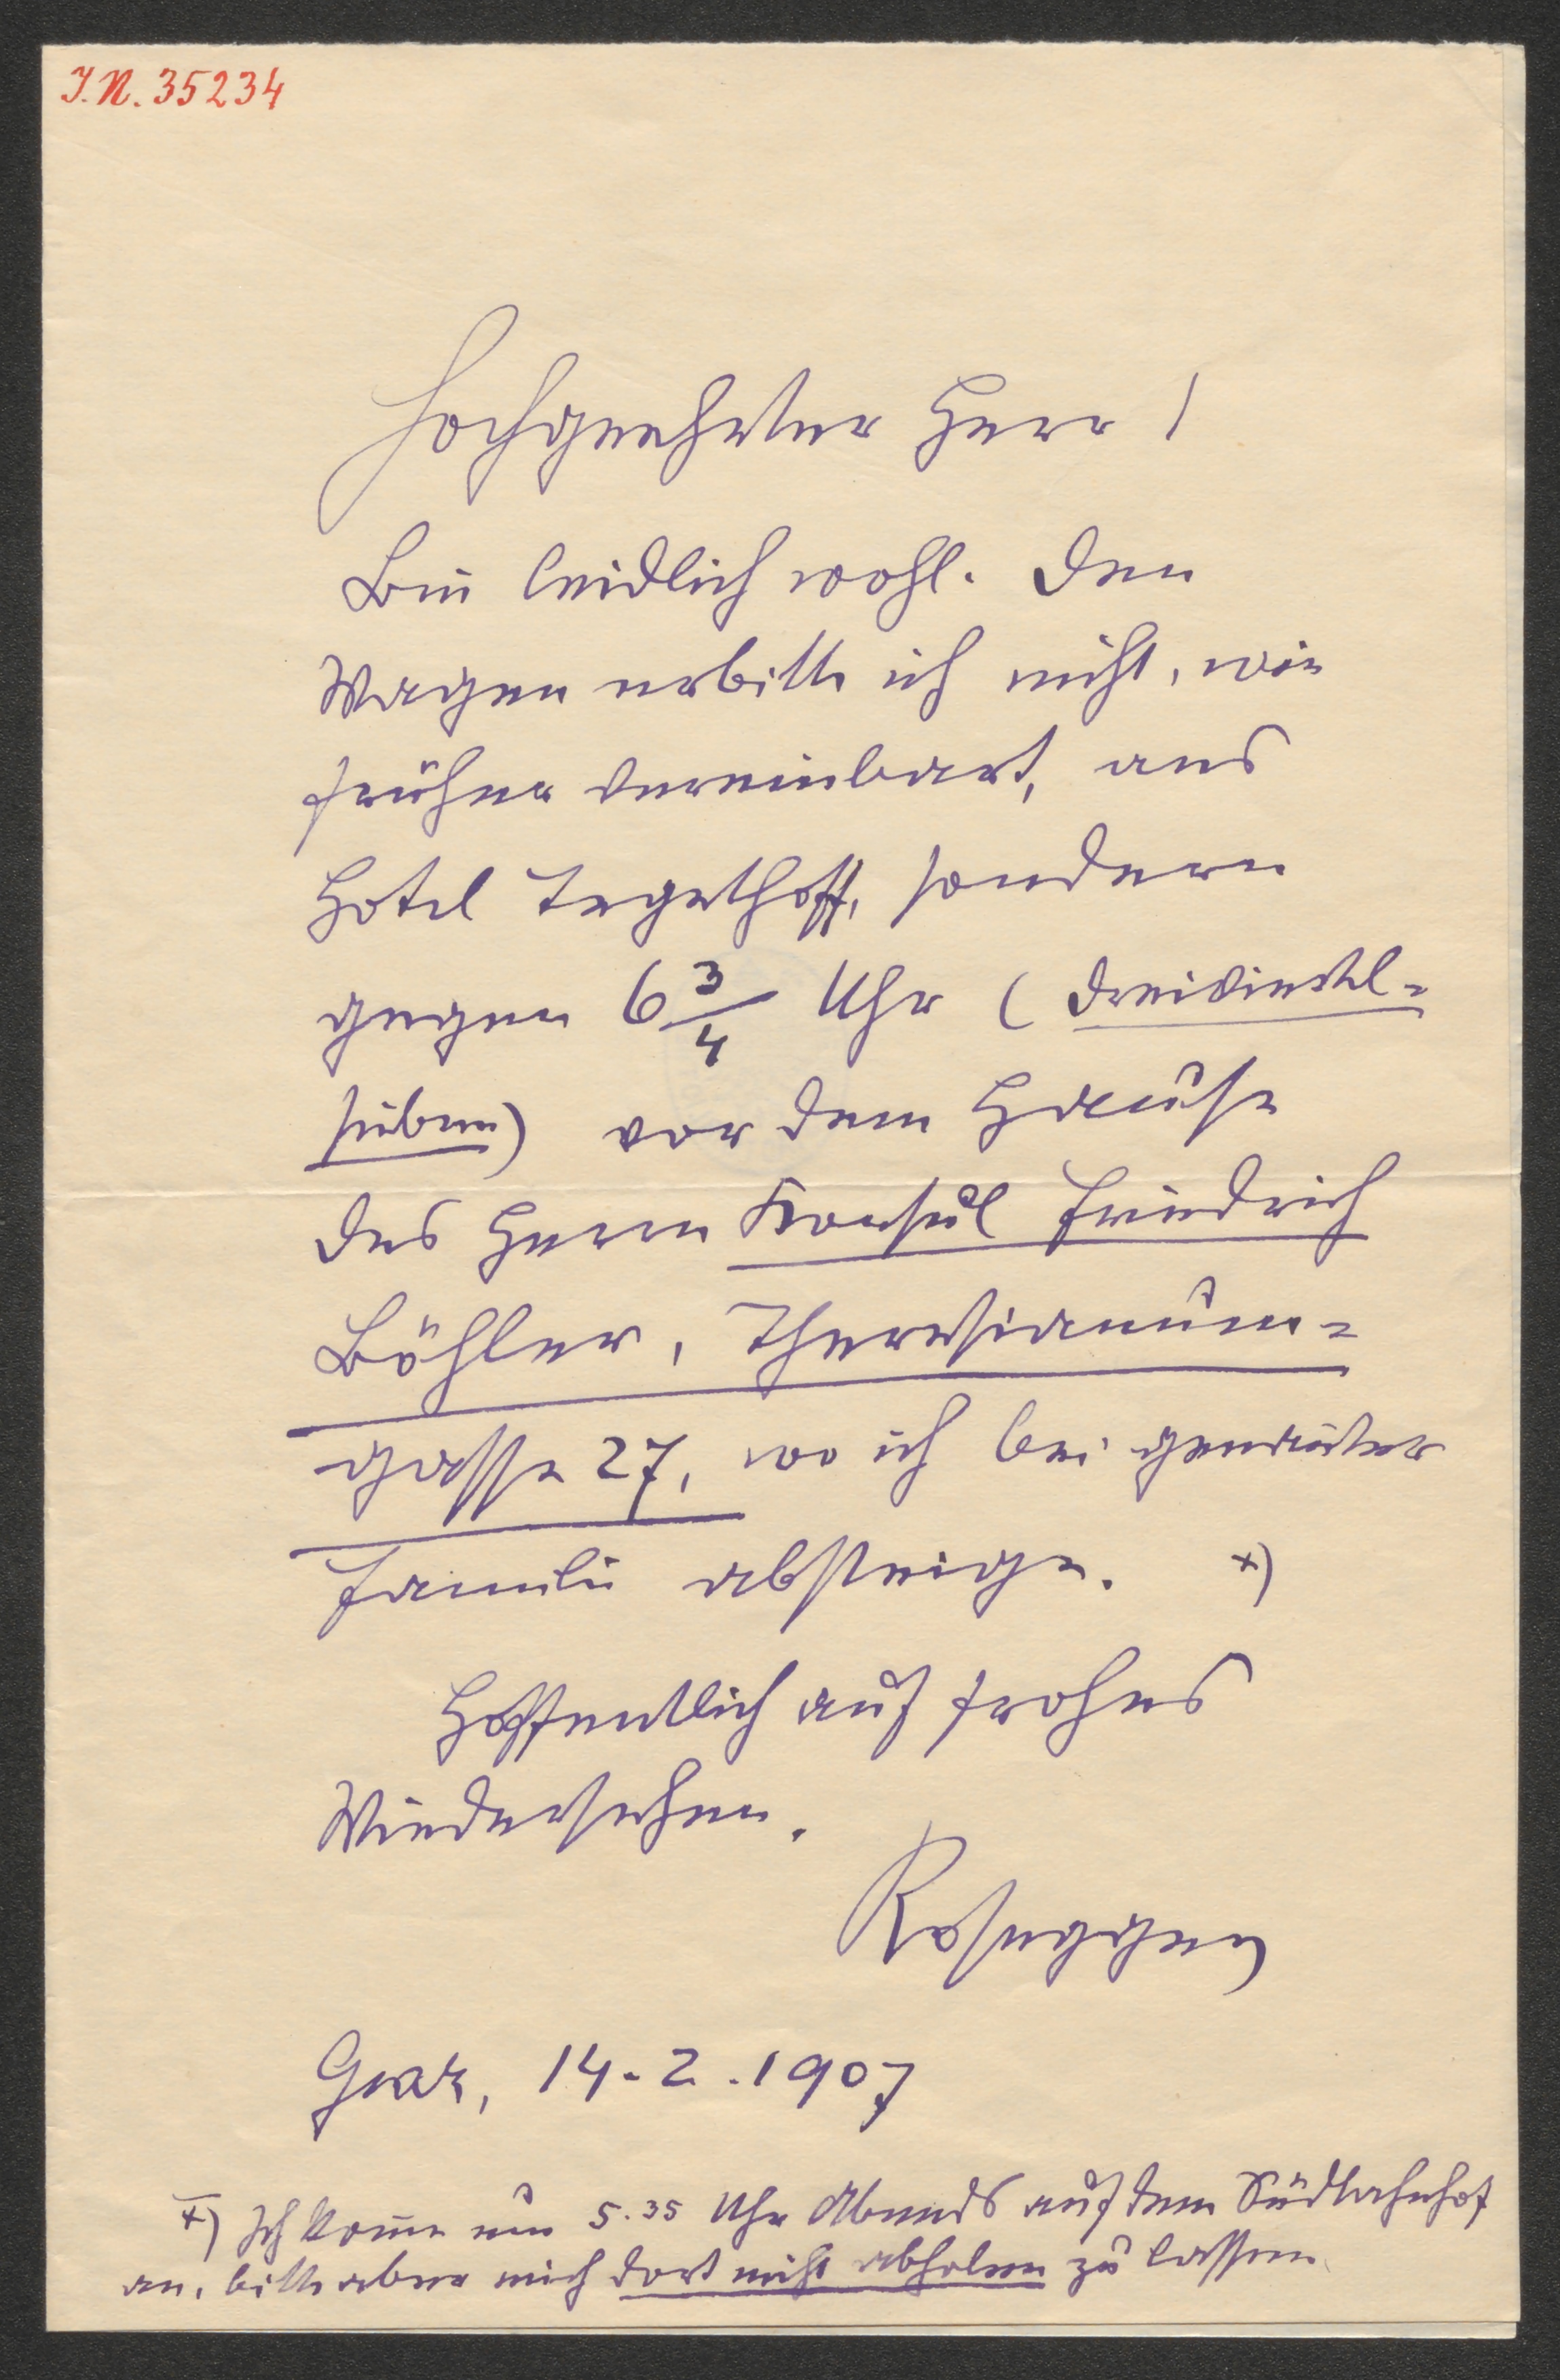 I.N. 35234
Hochgeehrter Herr!
Bin leidlich wohl. Den
Wagen erbitte ich nicht, wie
früher vereinbart, ans
Hotel Tegethoff, sondern
gegen 6 3/4 Uhr (dreiviertel-
sieben) vor dem Hause
des Herrn Konsul Friedrich
Böhler, Theresianum-
gasse 27, wo ich bei genannter
Familie absteige. x)
Hoffentlich auf frohes
Wiedersehen.
Rosegger
Graz, 14.2.1907
x) Ich kome um 5.35 Uhr Abends auf dem Südbahnhof
an, bitte aber mich dort nicht abholen zu lassen.